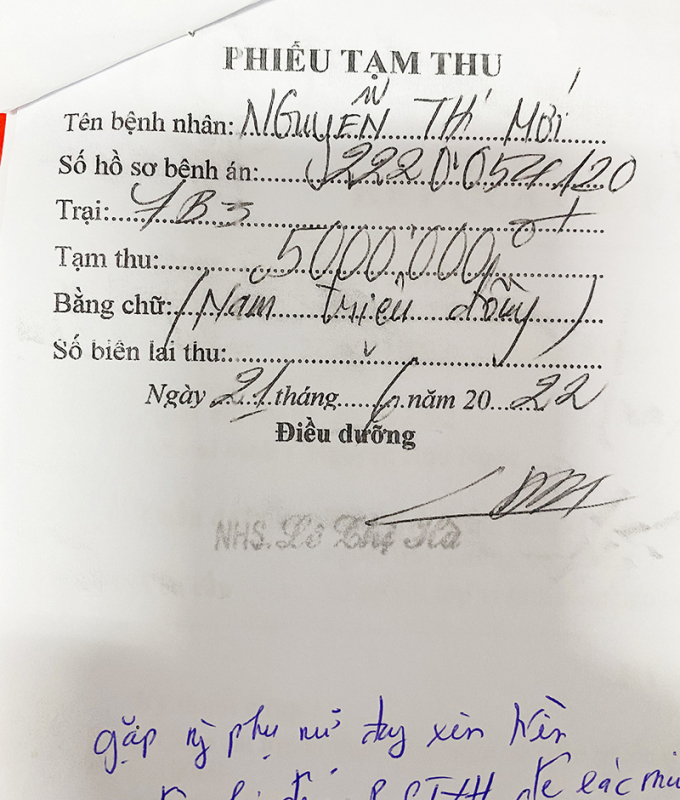 PHIẾU TẠM THU
Tên bệnh nhân: NGUYỄN THỊ MỚI
Số hồ sơ bệnh án: 222005420
Trại: 4B3
Tạm thu: 5000.000 đ
Bằng chữ: (Năm triệu đồng)
Số biên lai thu:
Ngày 21 tháng 6 năm 2022
Điều dưỡng
NHS. Lê Thị Hà
gặp phụ nữ xin
để các